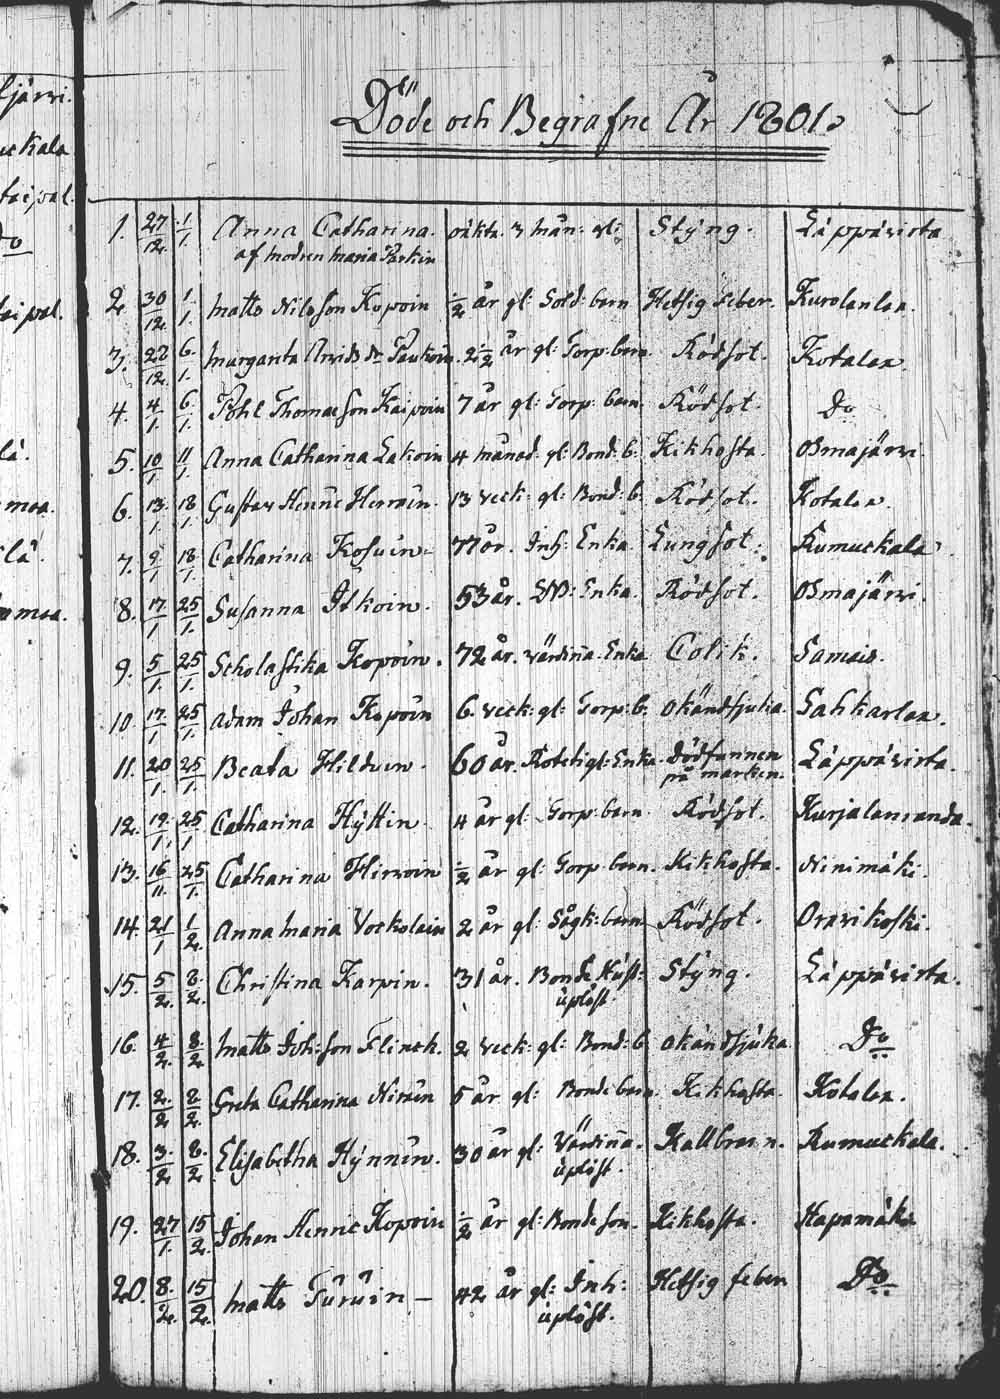 ljärvi.
uckala
taipal.
Do
taipal.
la.
moa.
la.
moa.
Döde och Begrafne År 1801.
1. 27/12. 1/1. Anna Catharina. oäkta 3 mån: gl: Styng. Läppävirta
af modren Maria Parkin
2. 30/12. 1/1. Matts Nilsson Kopoin ½ år gl: Sold: barn Hetsig feber. Kurolanlax.
3. 28/12. 6/1. Margareta Arvids dr Paukoin. 2½ år gl: Torp barn. Rödsot. Kotalax.
4. 4/1. 6/1. Pohl Thomasson Kaipoin 7 år gl: Torp: barn. Rödsot. Do
5. 10/1 11/1 Anna Catharina Lakoin 4 månad. gl: Bond: b. Kikhosta. Osmajärvi.
6. 13/1. 18/1. Gustav Henric Hervoin. 13 veck: gl: Bond: b. Rödsot. Kotalax.
7. 9/1 18/1 Catharina Kosuin. 77 år. Inh: Enka. Lungsot. Kumuckala
8. 17/1 25/1. Susanna Itkoin. 53 år. Enka. Rödsot. Osmajärvi.
9. 5/1. 25/1. Scholastika Kopoin. 72 år. Värdiña Enka Colik. Samais.
10. 17/1. 25/1. Adam Johan Kopoin 6. veck: gl: Torp: b. okändsjuka. Sahkarlax.
11. 20/1. 25/1. Beata Hilduin. 60 år. Rotelighets: Enka. Dödfunnen Läppävirta.
på marken.
12. 19/1. 25/1 Catharina Hyttin. 4 år gl: Torp: barn. Rödsot. Kurjalanranda.
13. 16/11. 25/1. Catharina Hirvoin ½ år gl: Torp barn. Kikhosta. Ninimäki.
14. 21/1 1/2. Anna Maria Vockolain 2 år gl: Sågk: barn Rödsot. Oravikoski.
15. 5/2. 8/2. Christina Karpin. 31 år. Bonde Hust: Styng. Läppävirta.
uplöst.
16. 4/2. 8/2 Matts Joh:son Flinck. 2 veck: gl: Bond: b okändsjuka Do
17. 2/2 8/2. Greta Catharina Nivain 5 år gl: Bonde barn. Kikhosta. Kotalax.
18. 3/2 8/2. Elisabetha Hynnin. 30 år gl: Värdiña. Kallbrann. Kumuckala.
uplöst.
19. 27/1. 15/2. Johan Henric Kopoin ½ år gl: Bonde son. Kikhosta. Hapamäki
20. 8/2. 15/2. Matts Turuin – 42 år gl: Inh: Hetsig feber Do
uplöst.